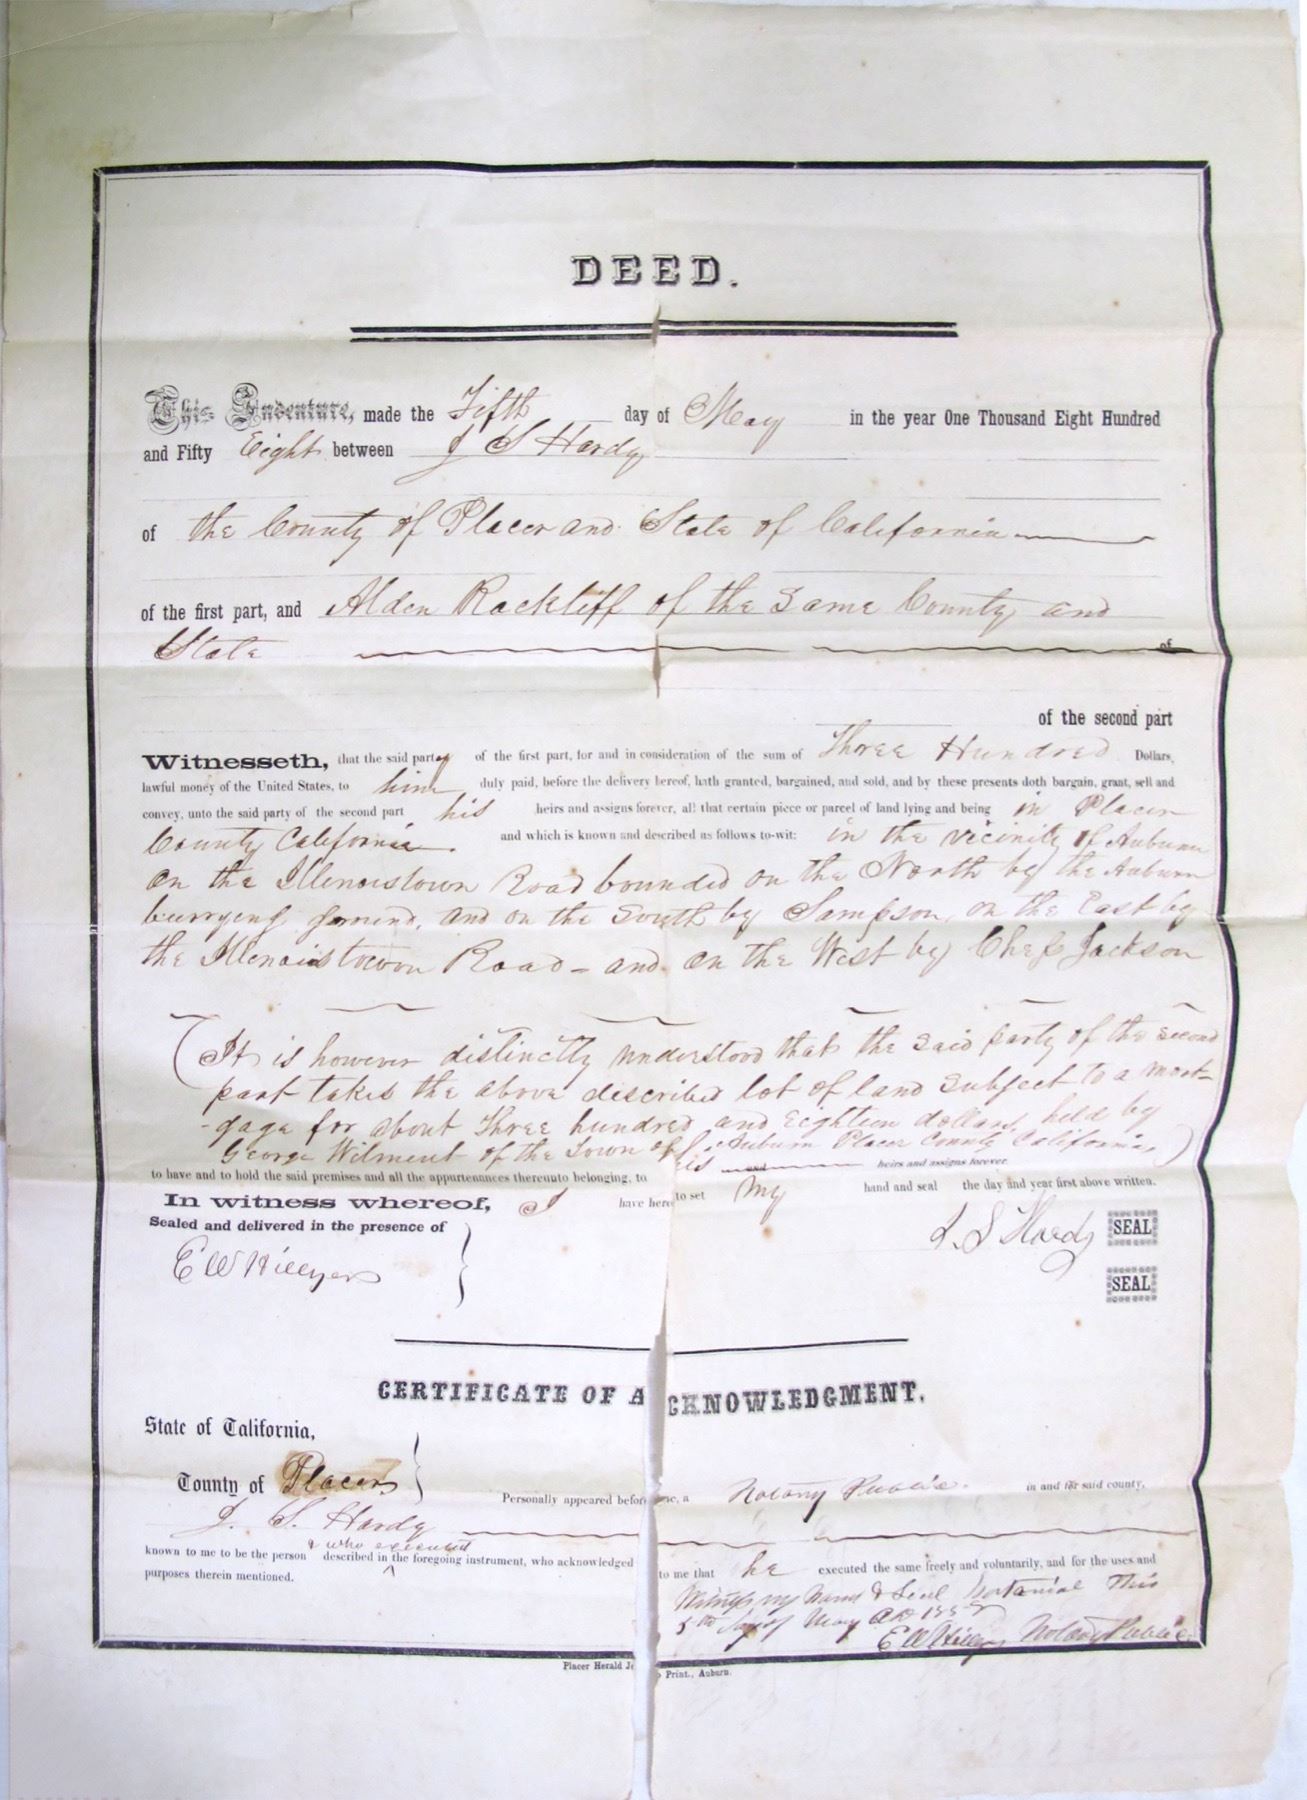 DEED.
This Indenture, made the Fifth day of May in the year One Thousand Eight Hundred
and Fifty Eight between J S Hardy
of the County of Placer and State of California
of the first part, and Alden Rackliff of the Same County and
State of
of the second part
Witnesseth, that the said party of the first part, for and in consideration of the sum of Three Hundred Dollars,
lawful money of the United States, to him duly paid, before the delivery hereof, hath granted, bargained, and sold, and by these presents doth bargain, grant, sell and
convey, unto the said party of the second part his heirs and assigns forever, all that certain piece or parcel of land lying and being in Placer
County California. and which is known and described as follows to-wit: in the vicinity of Auburn
on the Illenoistown Road bounded on the North by the Auburn
burrying ground, and on the South by Sampson, on the East by
the Illenoistown Road - and on the West by Jackson
(It is however distinctly understood that the said party of the second
part takes the above described lot of land subject to a mort-
-gage for about Three hundred and Eighteen dollars, held by
George Wilment of the Town of Auburn Placer County California)
to have and to hold the said premises and all the appurtenances thereunto belonging, to his and heirs and assigns forever.
In witness whereof, I have hereto set my hand and seal the day and year first above written.
Sealed and delivered in the presence of
J. S Hardy SEAL
E W Hillyer
SEAL
CERTIFICATE OF ACKNOWLEDGMENT.
State of California,
County of Placer
Personally appeared before me, a Notary Public. in and for said county,
J. S. Hardy
& who executed
known to me to be the person described in the foregoing instrument, who acknowledged to me that he executed the same freely and voluntarily, and for the uses and
purposes therein mentioned.
Witness my Hand & Seal Notarial This
5th day of May AD 1858
E W Hillyer Notary Public
Placer Herald Print., Auburn.